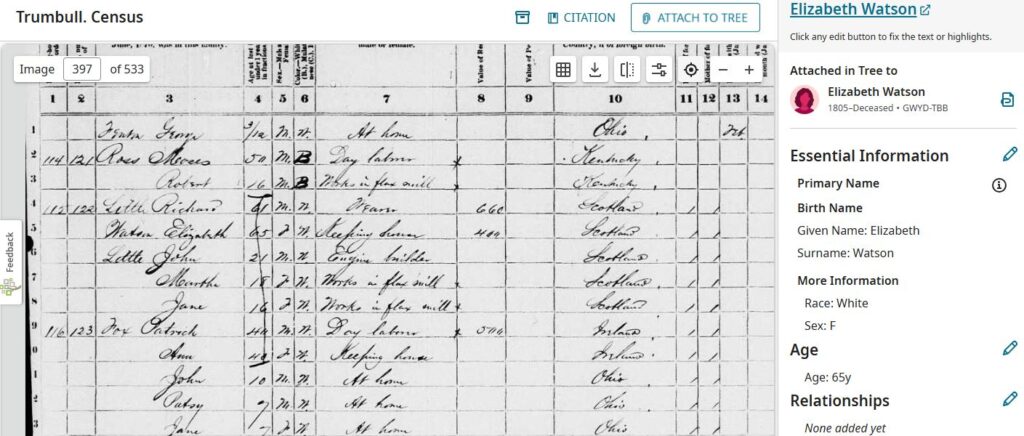 Trumbull. Census
CITATION
ATTACH TO TREE
Image 397 of 533
1 2 3 4 5 6 7 8 9 10 11 12 13 14
1 George 3/12 M. W. At home Ohio
2 114 121 Ross 50 M. B Day laborer Kentucky
3 Robert 16 M. B Works in flax mill Kentucky
4 115 122 Little Richard 61 M. W. Weaver 600 Scotland
5 Watson Elizabeth 65 F W. Keeping house 400 Scotland
6 Little John 21 M. W. Engine builder Scotland
7 Martha 18 F W. Works in flax mill Scotland
8 Jane 16 F W. Works in flax mill Scotland
9 116 123 Fox Patrick 40 M. W. Day laborer 500 Ireland
0 Ann 40 F W. Keeping house Ireland
1 John 10 M. W. At home Ohio
2 Patsy 9 M. W. At home Ohio
3 Jane 7 F W. At home Ohio
Feedback
Elizabeth Watson
Click any edit button to fix the text or highlights.
Attached in Tree to
Elizabeth Watson
1805–Deceased • GWYD-TBB
Essential Information
Primary Name
Birth Name
Given Name: Elizabeth
Surname: Watson
More Information
Race: White
Sex: F
Age
Age: 65y
Relationships
None added yet